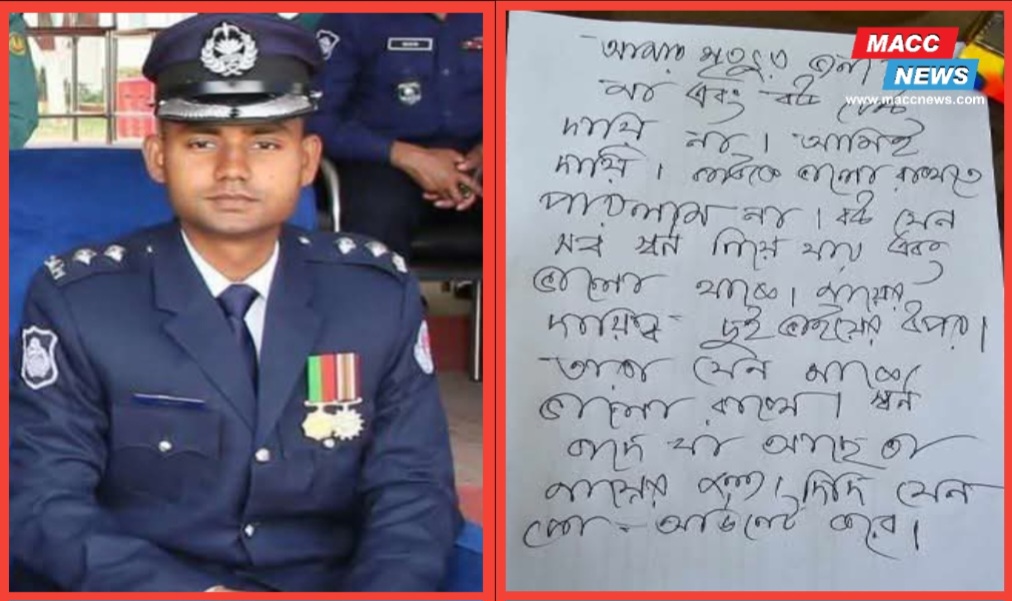 MACC
NEWS
www.maccnews.com
আমার মৃত্যুর জন্য
মা এবং বউ কেউ
দায়ি না। আমিই
দায়ি। কাউকে ভালো রাখতে
পারলাম না। বউ যেন
সব স্বর্ন নিয়ে যায় এবং
ভালো থাকে। মায়ের
দায়িত্ব দুই ভাইয়ের উপর।
তারা যেন মাকে
ভালো রাখে। স্বর্ন
বাদে যা আছে তা
মায়ের জন্য। দিদি যেন
কো-অর্ডিনেট করে।